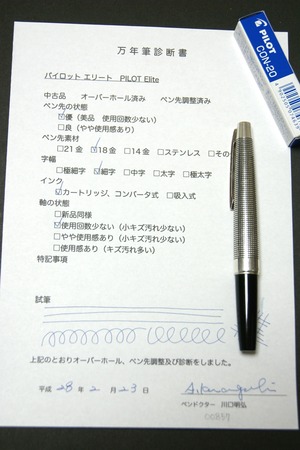 万年筆診断書
パイロット エリート　PILOT Elite
中古品　オーバーホール済み　ペン先調整済み
ペン先の状態
☑優（美品　使用回数少ない）
□良（やや使用感あり）
ペン先素材
□21金　☑18金　□14金　□ステンレス　□その
字幅
□極細字　☑細字　□中字　□太字　□極太字
インク
☑カートリッジ、コンバータ式　□吸入式
軸の状態
□新品同様
☑使用回数少ない（小キズ汚れ少ない）
□やや使用感あり（小キズ汚れ少ない）
□使用感あり（キズ汚れ多い）
特記事項
試筆
上記のとおりオーバーホール、ペン先調整及び診断をしました。
平成 28年 2月 23日
ペンドクター　川口明弘
PILOT
CON-20